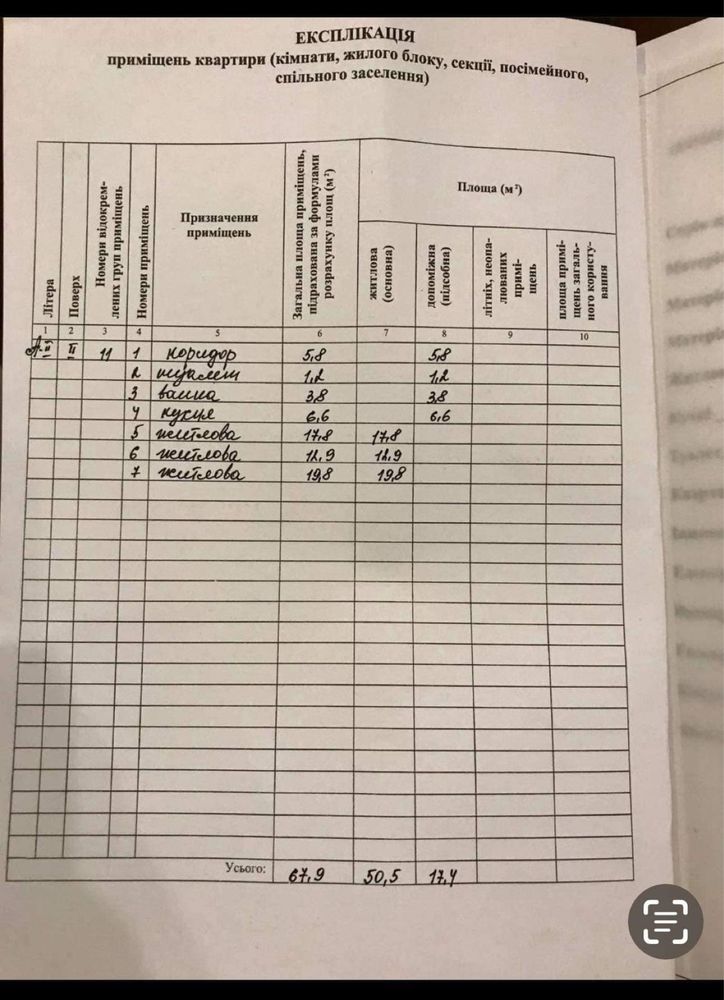 ЕКСПЛІКАЦІЯ
приміщень квартири (кімнати, жилого блоку, секції, посімейного,
спільного заселення)
Літера
Поверх
Номери відокрем-
лених груп приміщень
Номери приміщень
Призначення
приміщень
Загальна площа приміщень,
підрахована за формулами
розрахунку площ (м²)
Площа (м²)
житлова
(основна)
допоміжна
(підсобна)
літніх, неопа-
люваних
примі-
щень
площа примі-
щень загаль-
ного користу-
вання
1 2 3 4 5 6 7 8 9 10
А-II II 11 1 коридор 5,8 5,8
2 туалет 1,2 1,2
3 ванна 3,8 3,8
4 кухня 6,6 6,6
5 житлова 17,8 17,8
6 житлова 12,9 12,9
7 житлова 19,8 19,8
Усього: 67,9 50,5 17,4